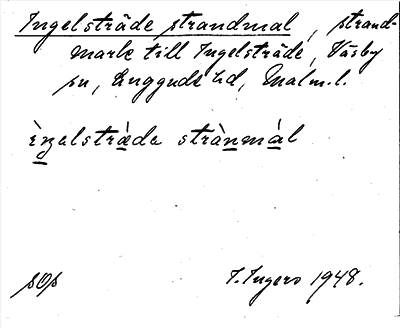 Ingelsträde strandmal, strand-
mark till Ingelsträde, Väsby
sn, Luggude hd, Malm.l.
ìŋəlsträ̀də strànmàl
sOp
I. Ingers 1948.